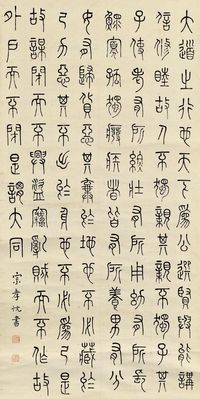 大道之行也天下為公選賢與能講
信修睦故人不獨親其親不獨子其
子使老有所終壯有所用幼有所長
鰥寡孤獨廢疾者皆有所養男有分
女有歸貨惡其棄於地也不必藏於
己力惡其不出於身也不必為己是
故謀閉而不興盜竊亂賊而不作故
外戶而不閉是謂大同
宗孝忱書